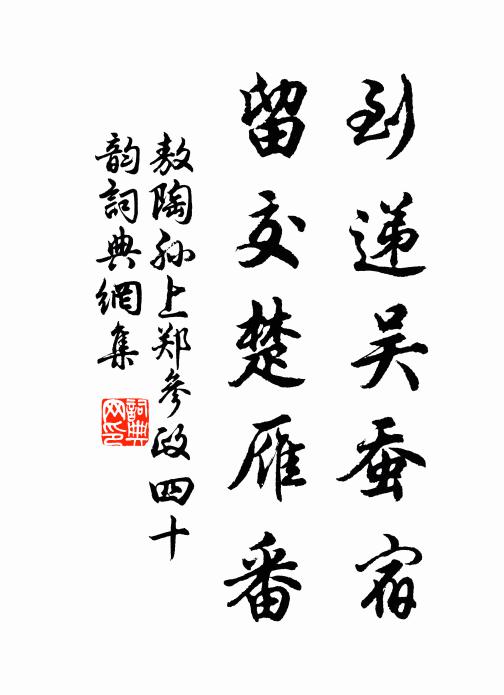 到递吴蚕宿
留交楚雁番
敖陶孙上郑参政四十
韵词典網集
詞典网印